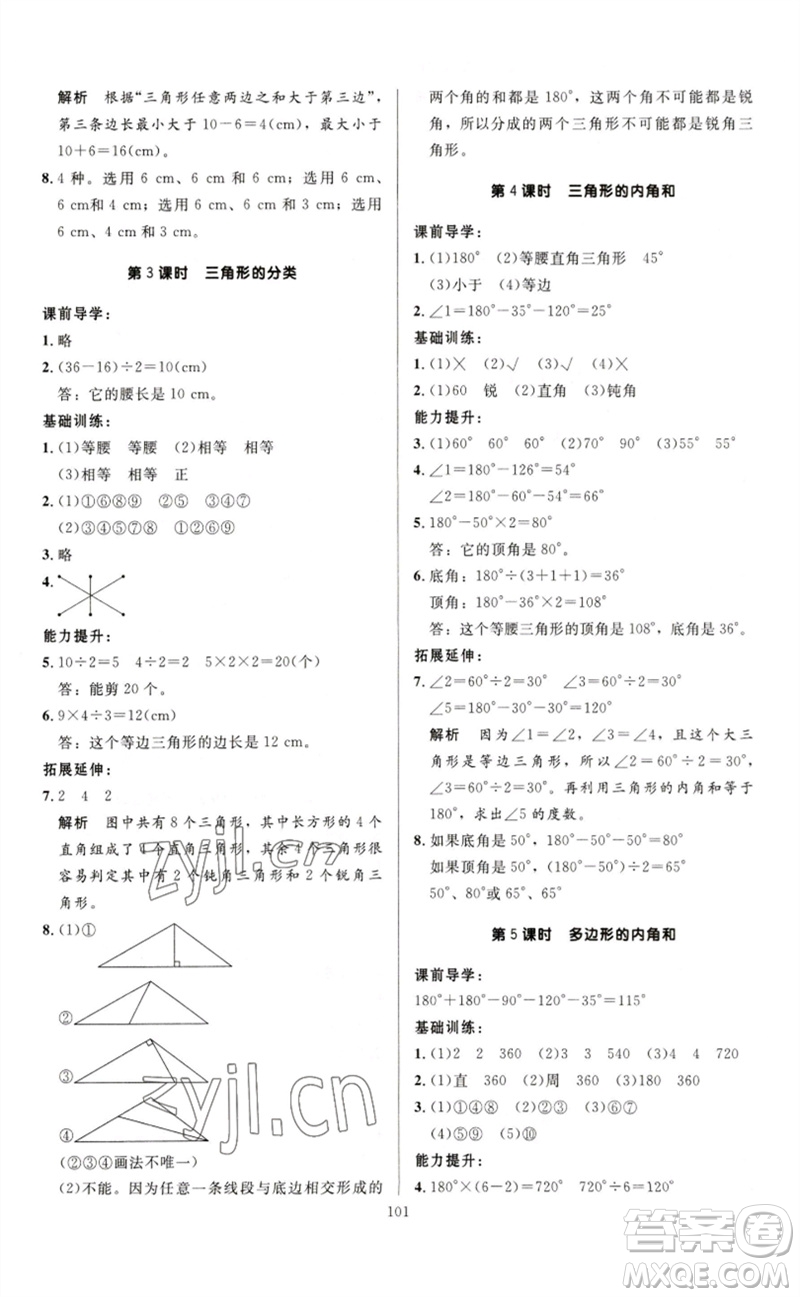 解析　根据“三角形任意两边之和大于第三边”，
第三条边长最小大于 10－6＝4(cm)，最大小于
10＋6＝16(cm)。
8. 4 种。选用 6 cm、6 cm 和 6 cm；选用 6 cm、
6 cm和 4 cm；选用 6 cm、5 cm 和 4 cm；选用
6 cm、6 cm 和 5 cm。
第 3 课时　三角形的分类
课前导学：
1. 略
2. (36－16)÷2＝10(cm)
答：它的腰长是 10 cm。
基础训练：
1. (1)等腰　等腰　(2)相等　相等
(3)相等　相等　正
2. (1)①⑥⑧⑨　②⑤　③④⑦
(2)③④⑤⑦⑧　①②⑥⑨
3. 略
4.
能力提升：
5. 10÷2＝5　4÷2＝2　5×2×2＝20(个)
答：能剪 20 个。
6. 9×4÷3＝12(cm)
答：这个等边三角形的边长是 12 cm。
拓展延伸：
7. 2　4　2
解析　图中共有 8 个三角形，其中长方形的 4 个
直角组成了 4 个直角三角形，根据观察图形很
容易判定其中有 2 个钝角三角形和 2 个锐角三
角形。
8. (1)①
②
③
④
(②③④画法不唯一)
(2)不能。因为任意一条线段与底边相交形成的
两个角的和都是 180°，这两个角不可能都是锐
角，所以分成的两个三角形不可能都是锐角三
角形。
第 4 课时　三角形的内角和
课前导学：
1. (1)180°　(2)等腰直角三角形　45°
(3)小于　(4)等边
2. ∠1＝180°－35°－120°＝25°
基础训练：
1. (1)×　(2)√　(3)√　(4)×
2. (1)60　锐　(2)直角　(3)钝角
能力提升：
3. (1)60°　60°　60°　(2)70°　90°　(3)55°　55°
4. ∠1＝180°－126°＝54°
∠2＝180°－60°－54°＝66°
5. 180°－50°×2＝80°
答：它的顶角是 80°。
6. 底角：180°÷(3＋1＋1)＝36°
顶角：180°－36°×2＝108°
答：这个等腰三角形的顶角是 108°，底角是 36°。
拓展延伸：
7. ∠2＝60°÷2＝30°　∠3＝60°÷2＝30°
∠5＝180°－30°－30°＝120°
解析　因为∠1＝∠2，∠3＝∠4，且这个大三
角形是等边三角形，所以∠2＝60°÷2＝30°，
∠3＝60°÷2＝30°。再利用三角形的内角和等于
180°，求出∠5 的度数。
8. 如果底角是 50°，180°－50°－50°＝80°
如果顶角是 50°，(180°－50°)÷2＝65°
50°、80°或 65°、65°
第 5 课时　多边形的内角和
课前导学：
180°＋180°－90°－120°－35°＝115°
基础训练：
1. (1)2　2　360　(2)3　3　540　(3)4　4　720
2. (1)直　360　(2)周　360　(3)180　360
3. (1)①④⑧　(2)②③　(3)⑥⑦
(4)⑤⑨　(5)⑩
能力提升：
4. 180°×(6－2)＝720°　720°÷6＝120°
101
zyjl.cn
zyjl.cn
答案圈
MXQE.COM